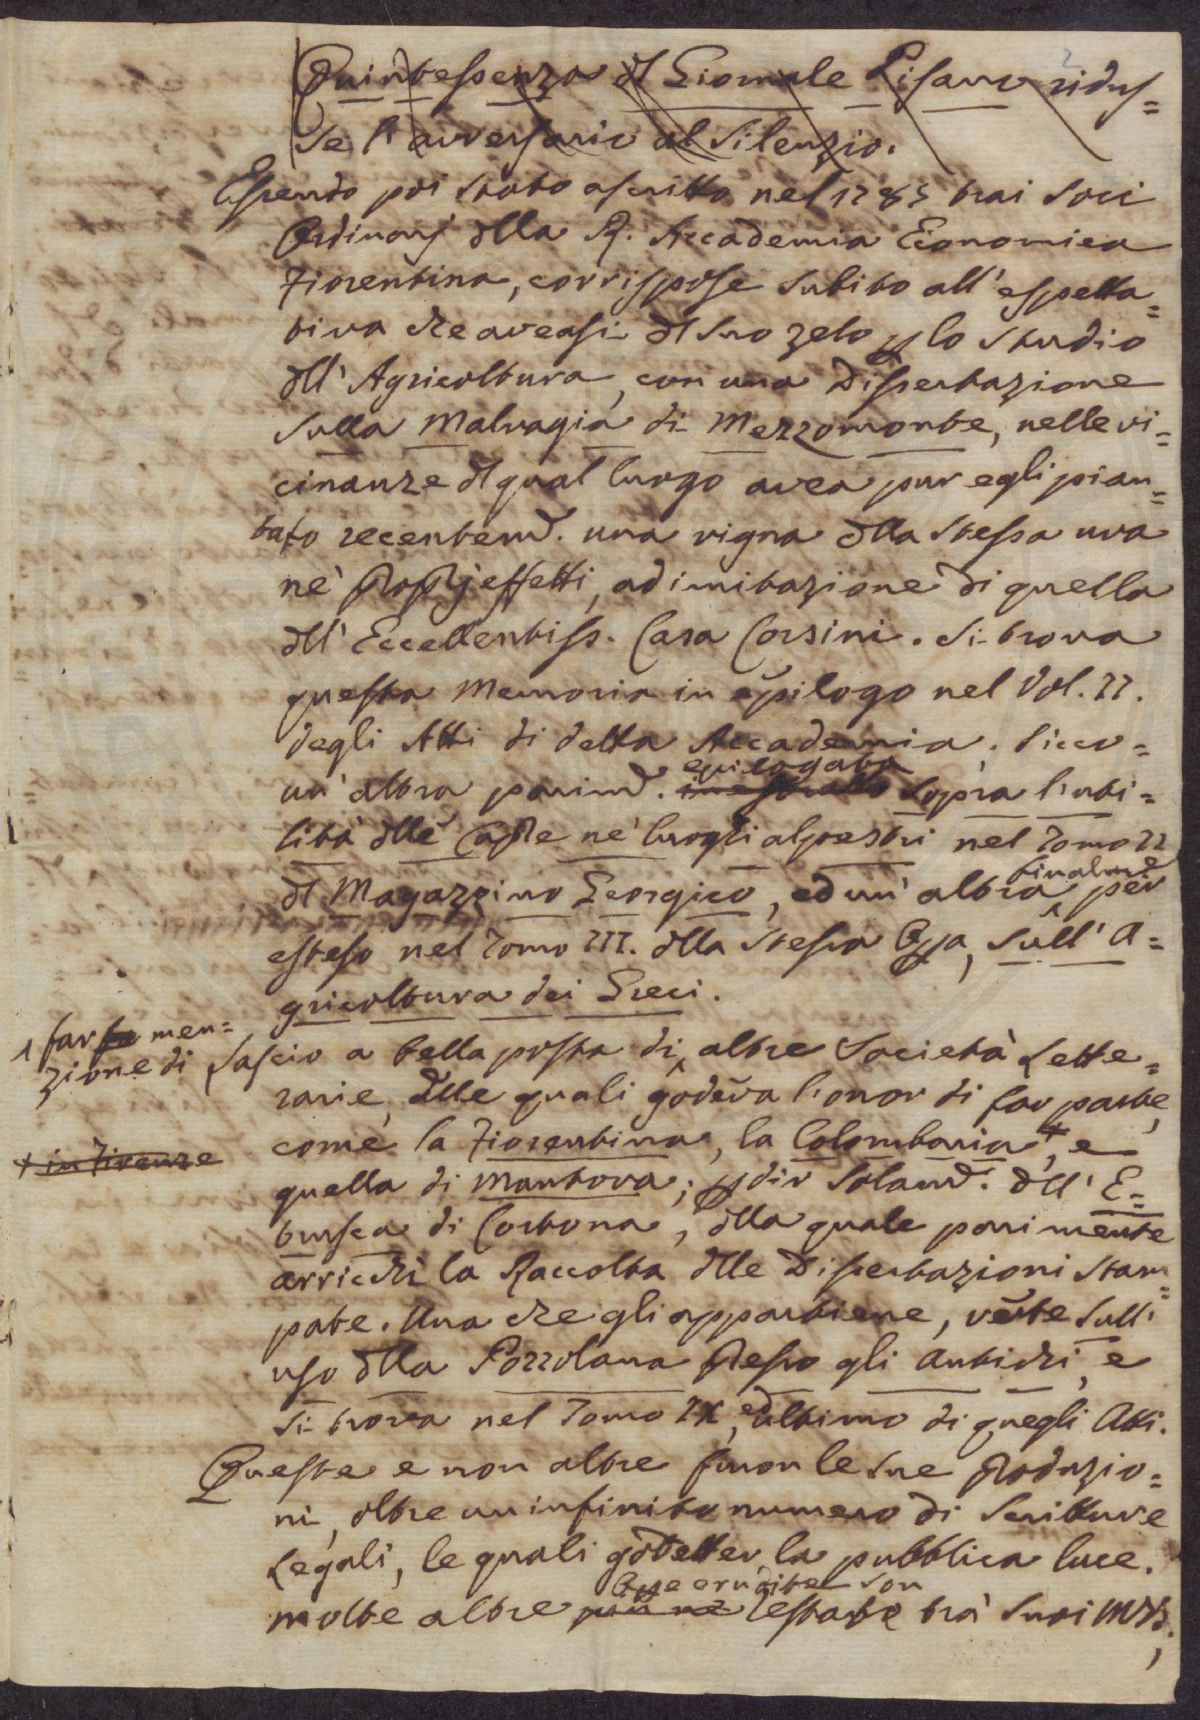 2
Quintessenza dl Giornale Pisano ridus=
se l'avversario al silenzio.
Essendo poi stato ascritto nel 1783 trai Soci
Ordinarj dlla R. Accademia Economica
Fiorentina, corrispose subito all'espetta=
tiva che aveasi dl suo zelo p lo studio
dll'Agricoltura, con una Dissertazione
sulla Malvagìa di Mezzomonte, nelle vi=
cinanze dl qual luogo avea pur egli pian=
tato recentemte. una vigna dlla stessa uva
nè proprj effetti, ad imitazione di quella
dll'Eccellentiss. Casa Corsini. Si trova
questa Memoria in epilogo nel Vol. II.
degli Atti di detta Accademia. Sicco=
epilogata
un'altra parimte. in estratto sopra l'uti=
lità dlle Capre nè luoghi alpestri nel Tomo II
finalmte
dl Magazzino Georgico, ed un'altra per
esteso nel Tomo III. dlla stessa Opa, sull'A=
gricoltura dei Greci.
far men=
zione di
Lascio a bella posta di altre Società Lette=
rarie, dlle quali godeva l'onor di far parte,
come la Fiorentina, la Colombaria +, e
+ in Firenze
quella di Mantova; p dir solamte. dll'E=
trusca di Cortona, dlla quale parimente
arricchì la Raccolta dlle Dissertazioni stam=
pate. Una che gli appartiene, verte sull'
uso dlla Pozzolana presso gli antichi, e
si trova nel Tomo IX, ed ultimo di quegli Atti.
Queste e non altre furon le sue produzio=
ni, oltre un infinito numero di Scritture
Legali, le quali godetter la pubblica luce.
Ope erudite son
molte altre più ne restate trà suoi MSS.;